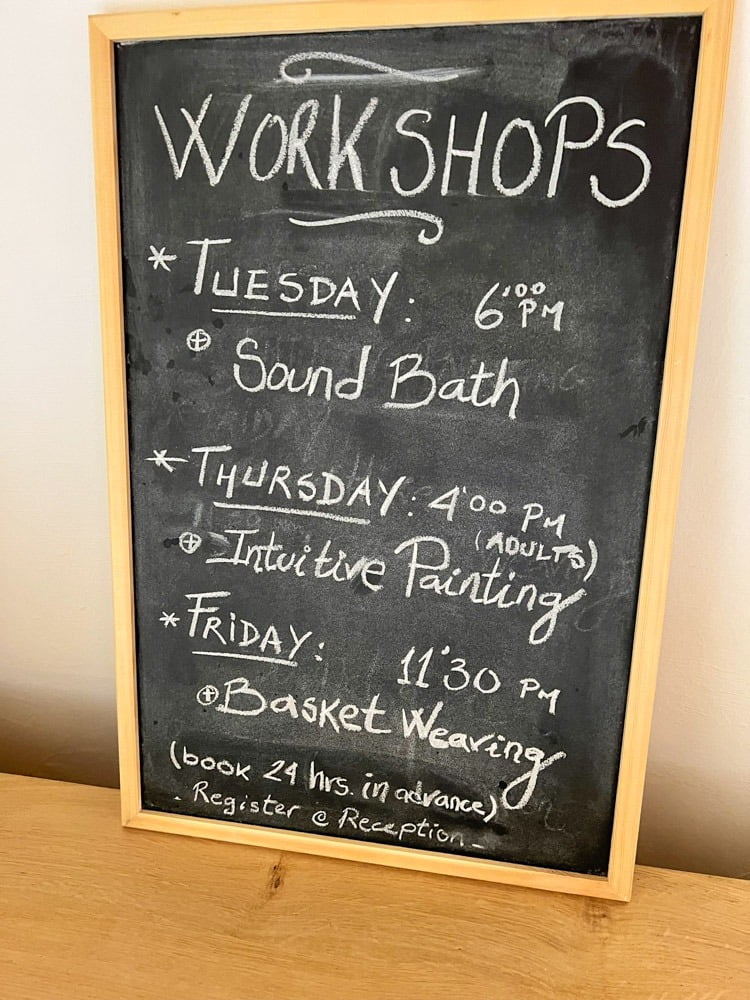 WORKSHOPS
* TUESDAY: 6'00 PM
⊕ Sound Bath
* THURSDAY: 4'00 PM
(ADULTS)
⊕ Intuitive Painting
* FRiDAY: 11'30 PM
⊕ Basket Weaving
(book 24 hrs. in advance)
- Register @ Reception -